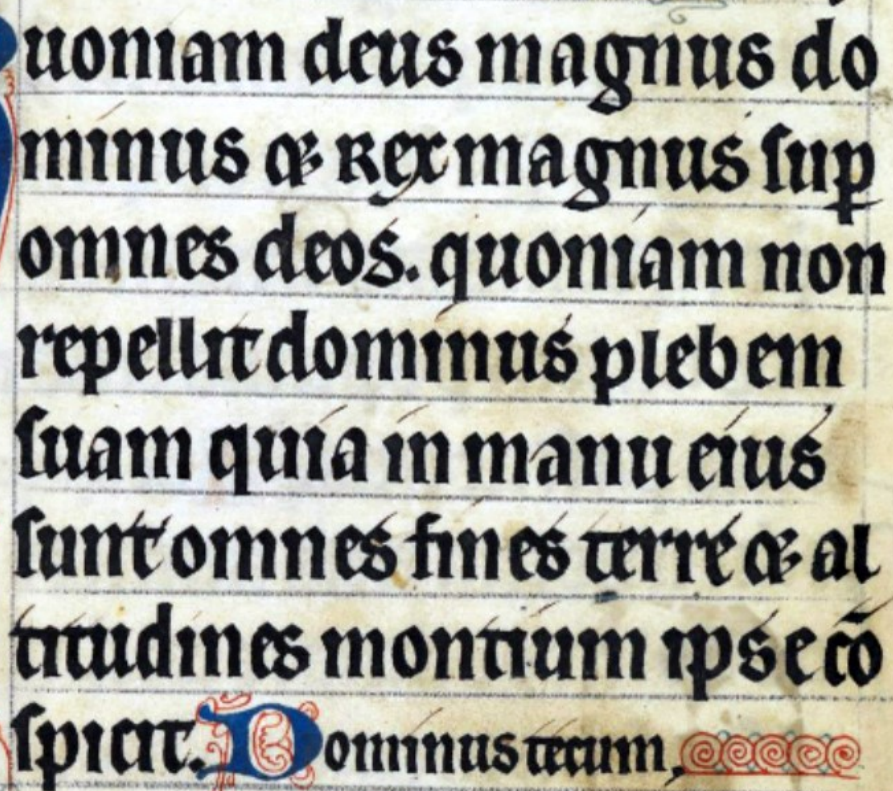 uoniam deus magnus do
minus & Rex magnus ſuꝑ
omnes deos. quoniam non
repellit dominus plebem
ſuam quia in manu eius
ſunt omnes fines terre & al
titudines montium ipse cō
ſpicit. Dominus tecum,